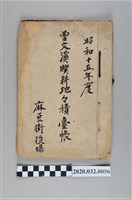 昭和十五年度
曾文溪贌耕地々積臺帳
麻豆街役場
2020.032.0056